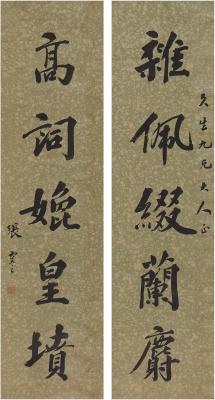 雜佩綴蘭麝
久生九兄大人正
高詞媲皇墳
張謇